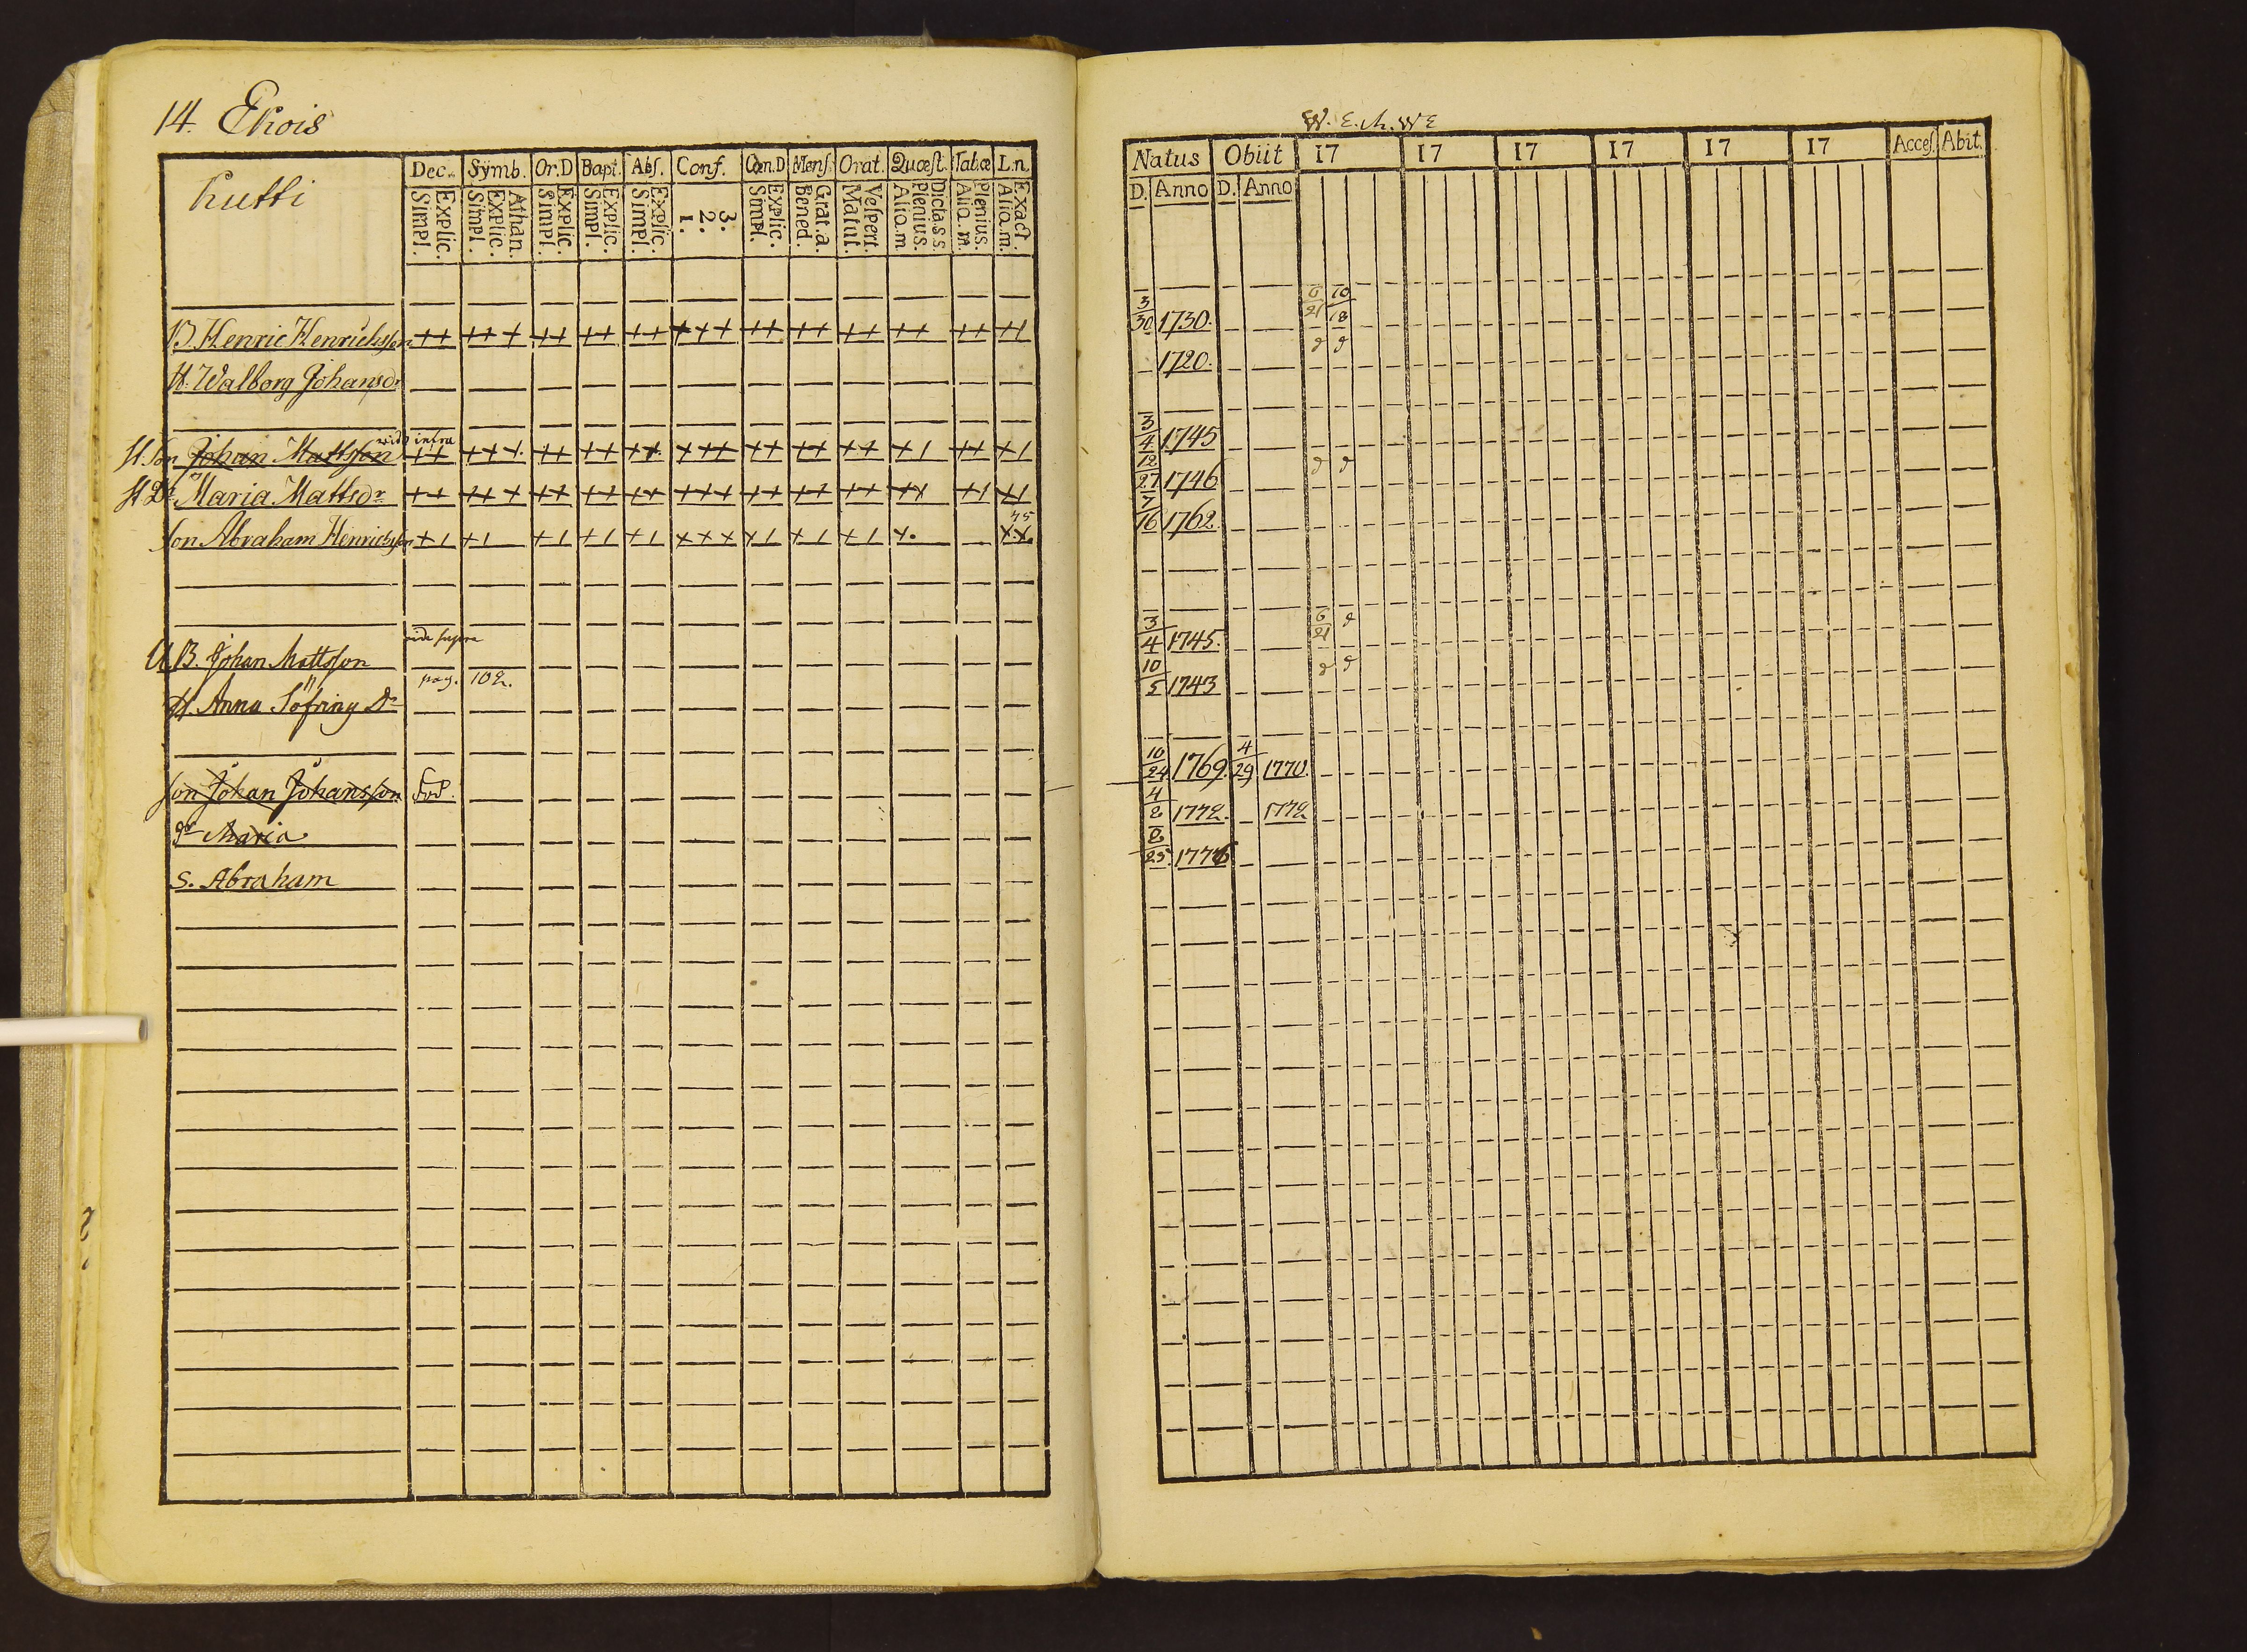 14. Ekois
Kutti
Dec. Symb. Or.D Bapt. Abs. Conf. Cœn.D Mens. Orat. Quæst. Tab.œ L.n.
Simpl. Explic. Simpl. Explic. Athan. Simpl. Explic. Simpl. Explic. Simpl. Explic. 1. 2. 3. Simpl. Explic. Bened. Grat.a. Matut. Vespert. Aliq.m Plenius. Dicta s.s. Aliq.m. Plenius. Aliq.m. Exact.
B. Henric Henrichsson
H. Walborg Johansdr
vide infra
H. Son Johan Mattsson
H Dr. Maria Mattsdr
Son Abraham Henrichsson
vide supra
U B. Johan Mattsson
pag. 102.
H. Anna Sofring Dr
Son Johan Johansson
Dr Maria
S. Abraham
W. E. M. WE
Natus Obiit 17 17 17 17 17 17 Acces. Abit.
D. Anno D. Anno
3/30 1730. 6/21 10/18
1720.
3/4 1745
12/27 1746
7/16 1762
3/4 1745. 6/21
10/5 1743
10/24 1769. 4/29 1770.
4/2 1772. 1772
2/25 1776